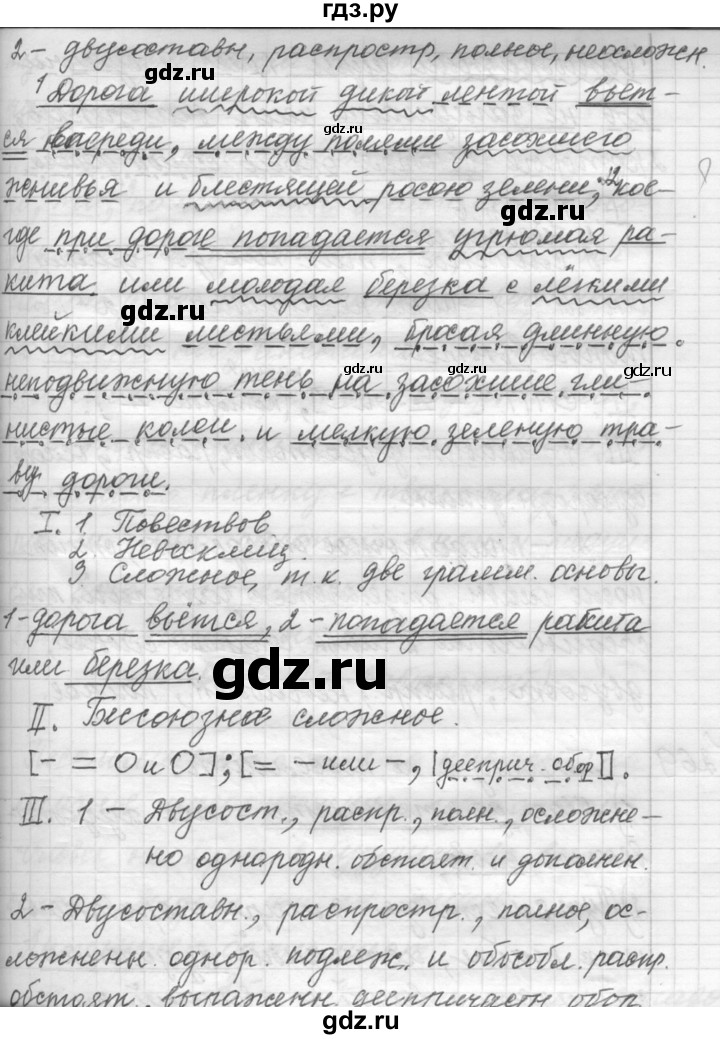 гдз.ру
2 - двусоставн, распростр, полное, неосложн.
¹Дорога широкой дикой лентой вьет-
ся впереди, между полями засохшего
жнивья и блестящей росою зелени; ²кое-
где при дороге попадается угрюмая ра-
кита или молодая березка с лёгкими
клейкими листьями, бросая длинную
неподвижную тень на засохшие гли-
нистые колеи и мелкую зеленую тра-
ву дороги.
I. 1 Повествов
2. Невосклиц.
3 Сложное, т.к. две грамм. основы.
1 - дорога вьётся, 2 - попадается ракита
или березка.
II. Бессоюзное сложное.
[- = О и О]; [= - или -, |дееприч. обор|].
III. 1 - Двусост., распр., полн., осложне-
но однородн. обстоят. и дополнен.
2 - Двусоставн., распростр., полное, ос-
ложненн. однор. подлеж. и обособл. распр.
обстоят., выраженн деепричастн обор
gdz.ru
gdz.ru
gdz.ru
gdz.ru
gdz.ru
gdz.ru
gdz.ru
gdz.ru
gdz.ru
gdz.ru
gdz.ru
gdz.ru
gdz.ru
gdz.ru